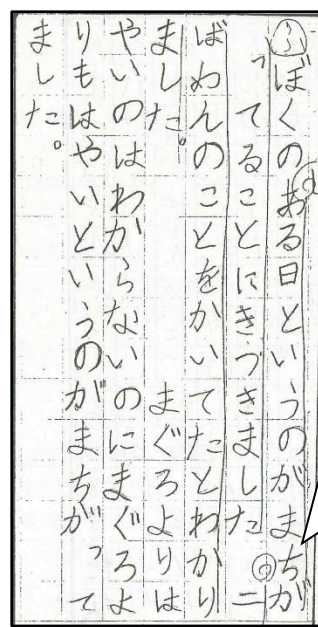 ぼくのある日というのがまちが
ってることにきづきました 二
ばめんのことをかいてたとわかり
ました。 まぐろよりは
やいのはわからないのにまぐろよ
りもはやいというのがまちがって
ました。